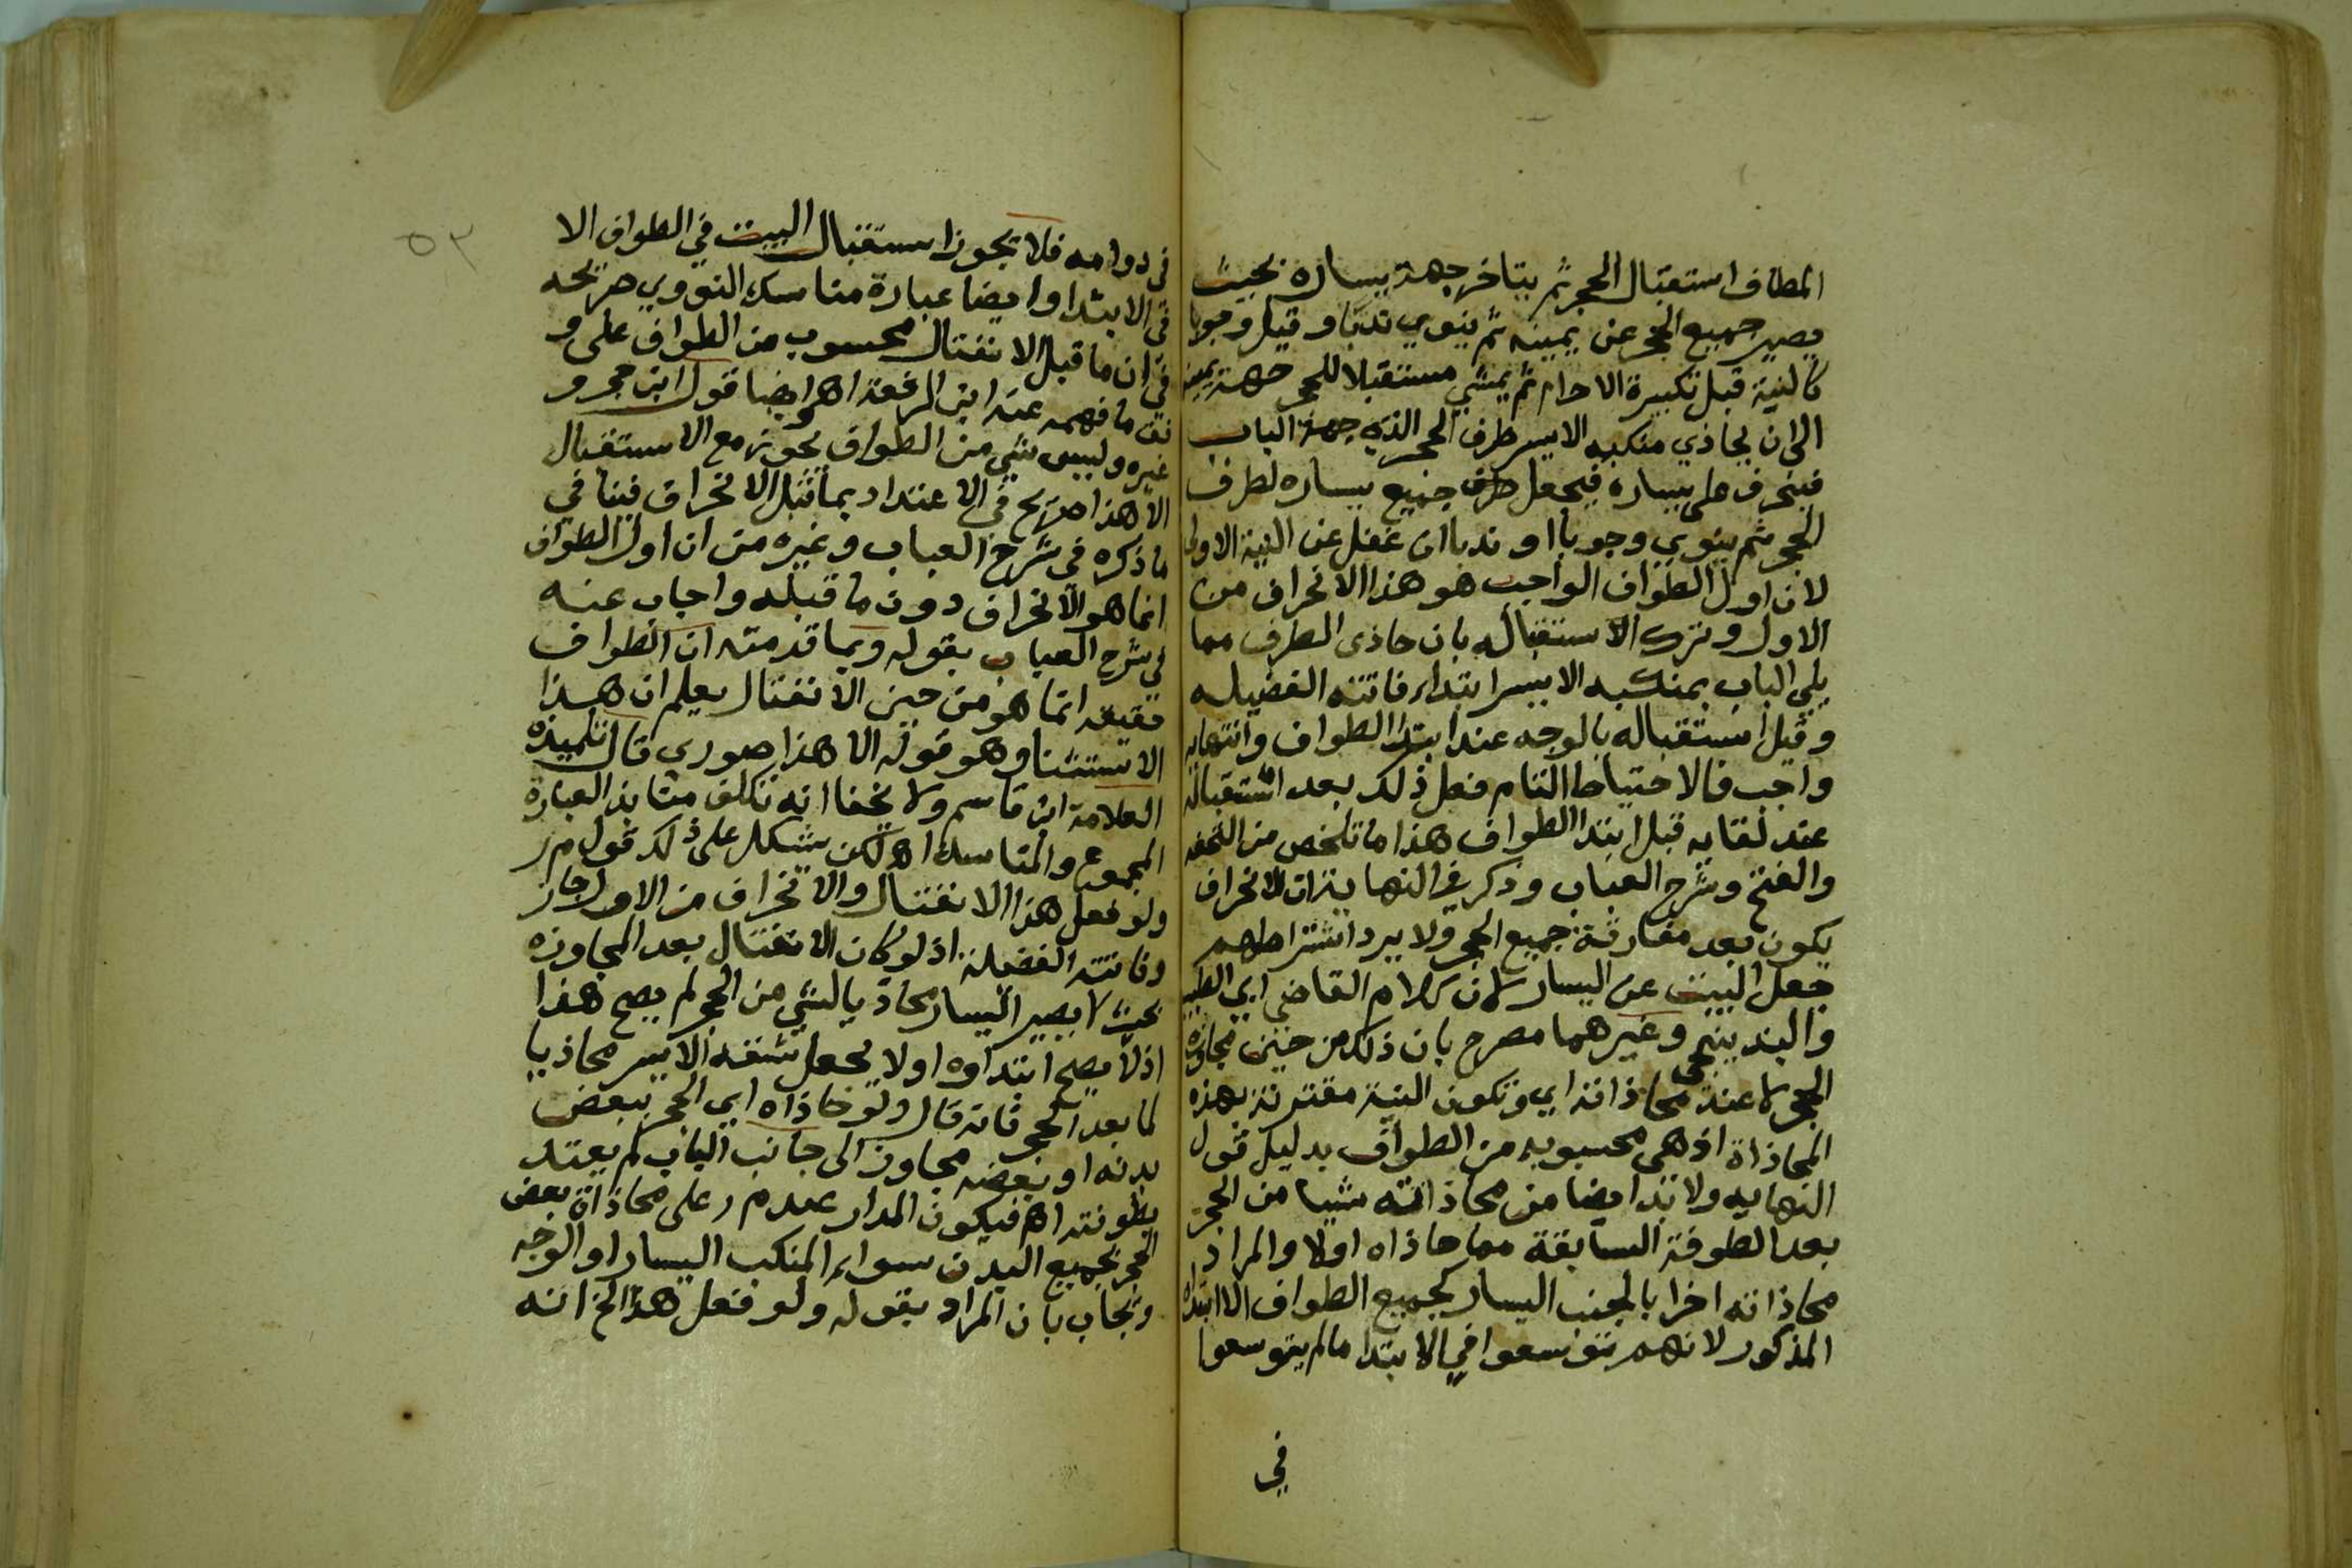 المطاف استقبال الحجر ثم يتاخر جهة يساره بحيث
يصير جميع الحجر عن يمينه ثم ينوي ندبا وقيل وجوبا
كالنية قبل تكبيرة الاحرام ثم يمشي مستقبلا للحجر جهة يمينه
الى ان يحاذي منكبه الايسر طرف الحجر الذي جهة الباب
فينحرف على يساره فيجعل طرف جنيع يساره لطرف
الحجر ثم ينوي وجوبا او ندبا ان غفل عن النية الاولى
لان اول الطواف الواجب هو هذا الانحراف من
الاول وترك الاستقبال بان حاذى الطرف مما
يلي الباب بمنكبه الايسر ابتداء فاتته الفضيله
وقيل استقباله بالوجه عند ابتدا الطواف وانتهايه
واجب فالاحتياط التام فعل ذلك بعد استقباله
عند لقايه قبل ابتدا الطواف هذا ما تلخص من التحفه
والفتح وشرح العباب وذكر في النهاية ان الانحراف
يكون بعد مفارقة جميع الحجر ولا يرد اشتراطهم
جعل البيت عن اليسار لان كلام القاضي ابي الطيب
والبندنيجي وغيرهما مصرح بان ذلك من حين مجاوزة
الحجر لا عند محاذاته اي وتكون النية مقترنة بهذه
المحاذاة اذ هي محسوبه من الطواف بدليل قول
النهايه ولا بد ايضا من محاذاته شيا من الحجر
بعد الطوفة السابقة مما حاذاه اولا والمراد
محاذاته اخرا بالجنب اليسار كجميع الطواف الا ابتداه
المذكور لانهم توسعوا في الابتدا ما لم يتوسعوا
في
٥٢
في دوامه فلا يجوز استقبال البيت في الطواف الا
في الابتدا وايضا عبارة مناسك النووي صريحه
في ان ما قبل الانفتال محسوب من الطواف على و
فق ما فهمه عنه ابن الرفعة اهـ وايضا قول ابن حجر و
غيره وليس شي من الطواف يجوز مع الاستقبال
الا هذا صريح في الاعتداد بما قبل الانحراف فينافي
ما ذكره في شرح العباب وغيره من ان اول الطواف
انما هو الانحراف دون ما قبله واجاب عنه
في شرح العباب بقوله وبما قدمته ان الطواف
حقيقه انما هو من حين الانفتال يعلم ان هذا
الاستثنا وهو قوله الا هذا صوري قال تلميذه
العلامة ابن قاسم ولا يخفا انه تكلف منابذ لعبارة
المجموع والمناسك اهـ لكن يشكل على ذلك قول م ر
ولو فعل هذا الانفتال والانحراف من الاول جاز
وفاتته الفضيلة اذ لو كان الانفتال بعد المجاوزه
بحيث لا يصير اليسار محاذيا لشي من الحجر لم يصح هذا
اذ لا يصح ابتداوه اولا بجعل شقه الايسر محاذيا
لما بعد الحجر فانه قال ولو حاذاه اي الحجر ببعض
بدنه او بعضه مجاوز الى جانب الباب لم يعتد
بطوفته اهـ فيكون المدار عند م ر على محاذاة بعض
الحجر بجميع البدن سواء المنكب اليسار او الوجه
ويجاب بان المراد بقوله ولو فعل هذا الخ انه